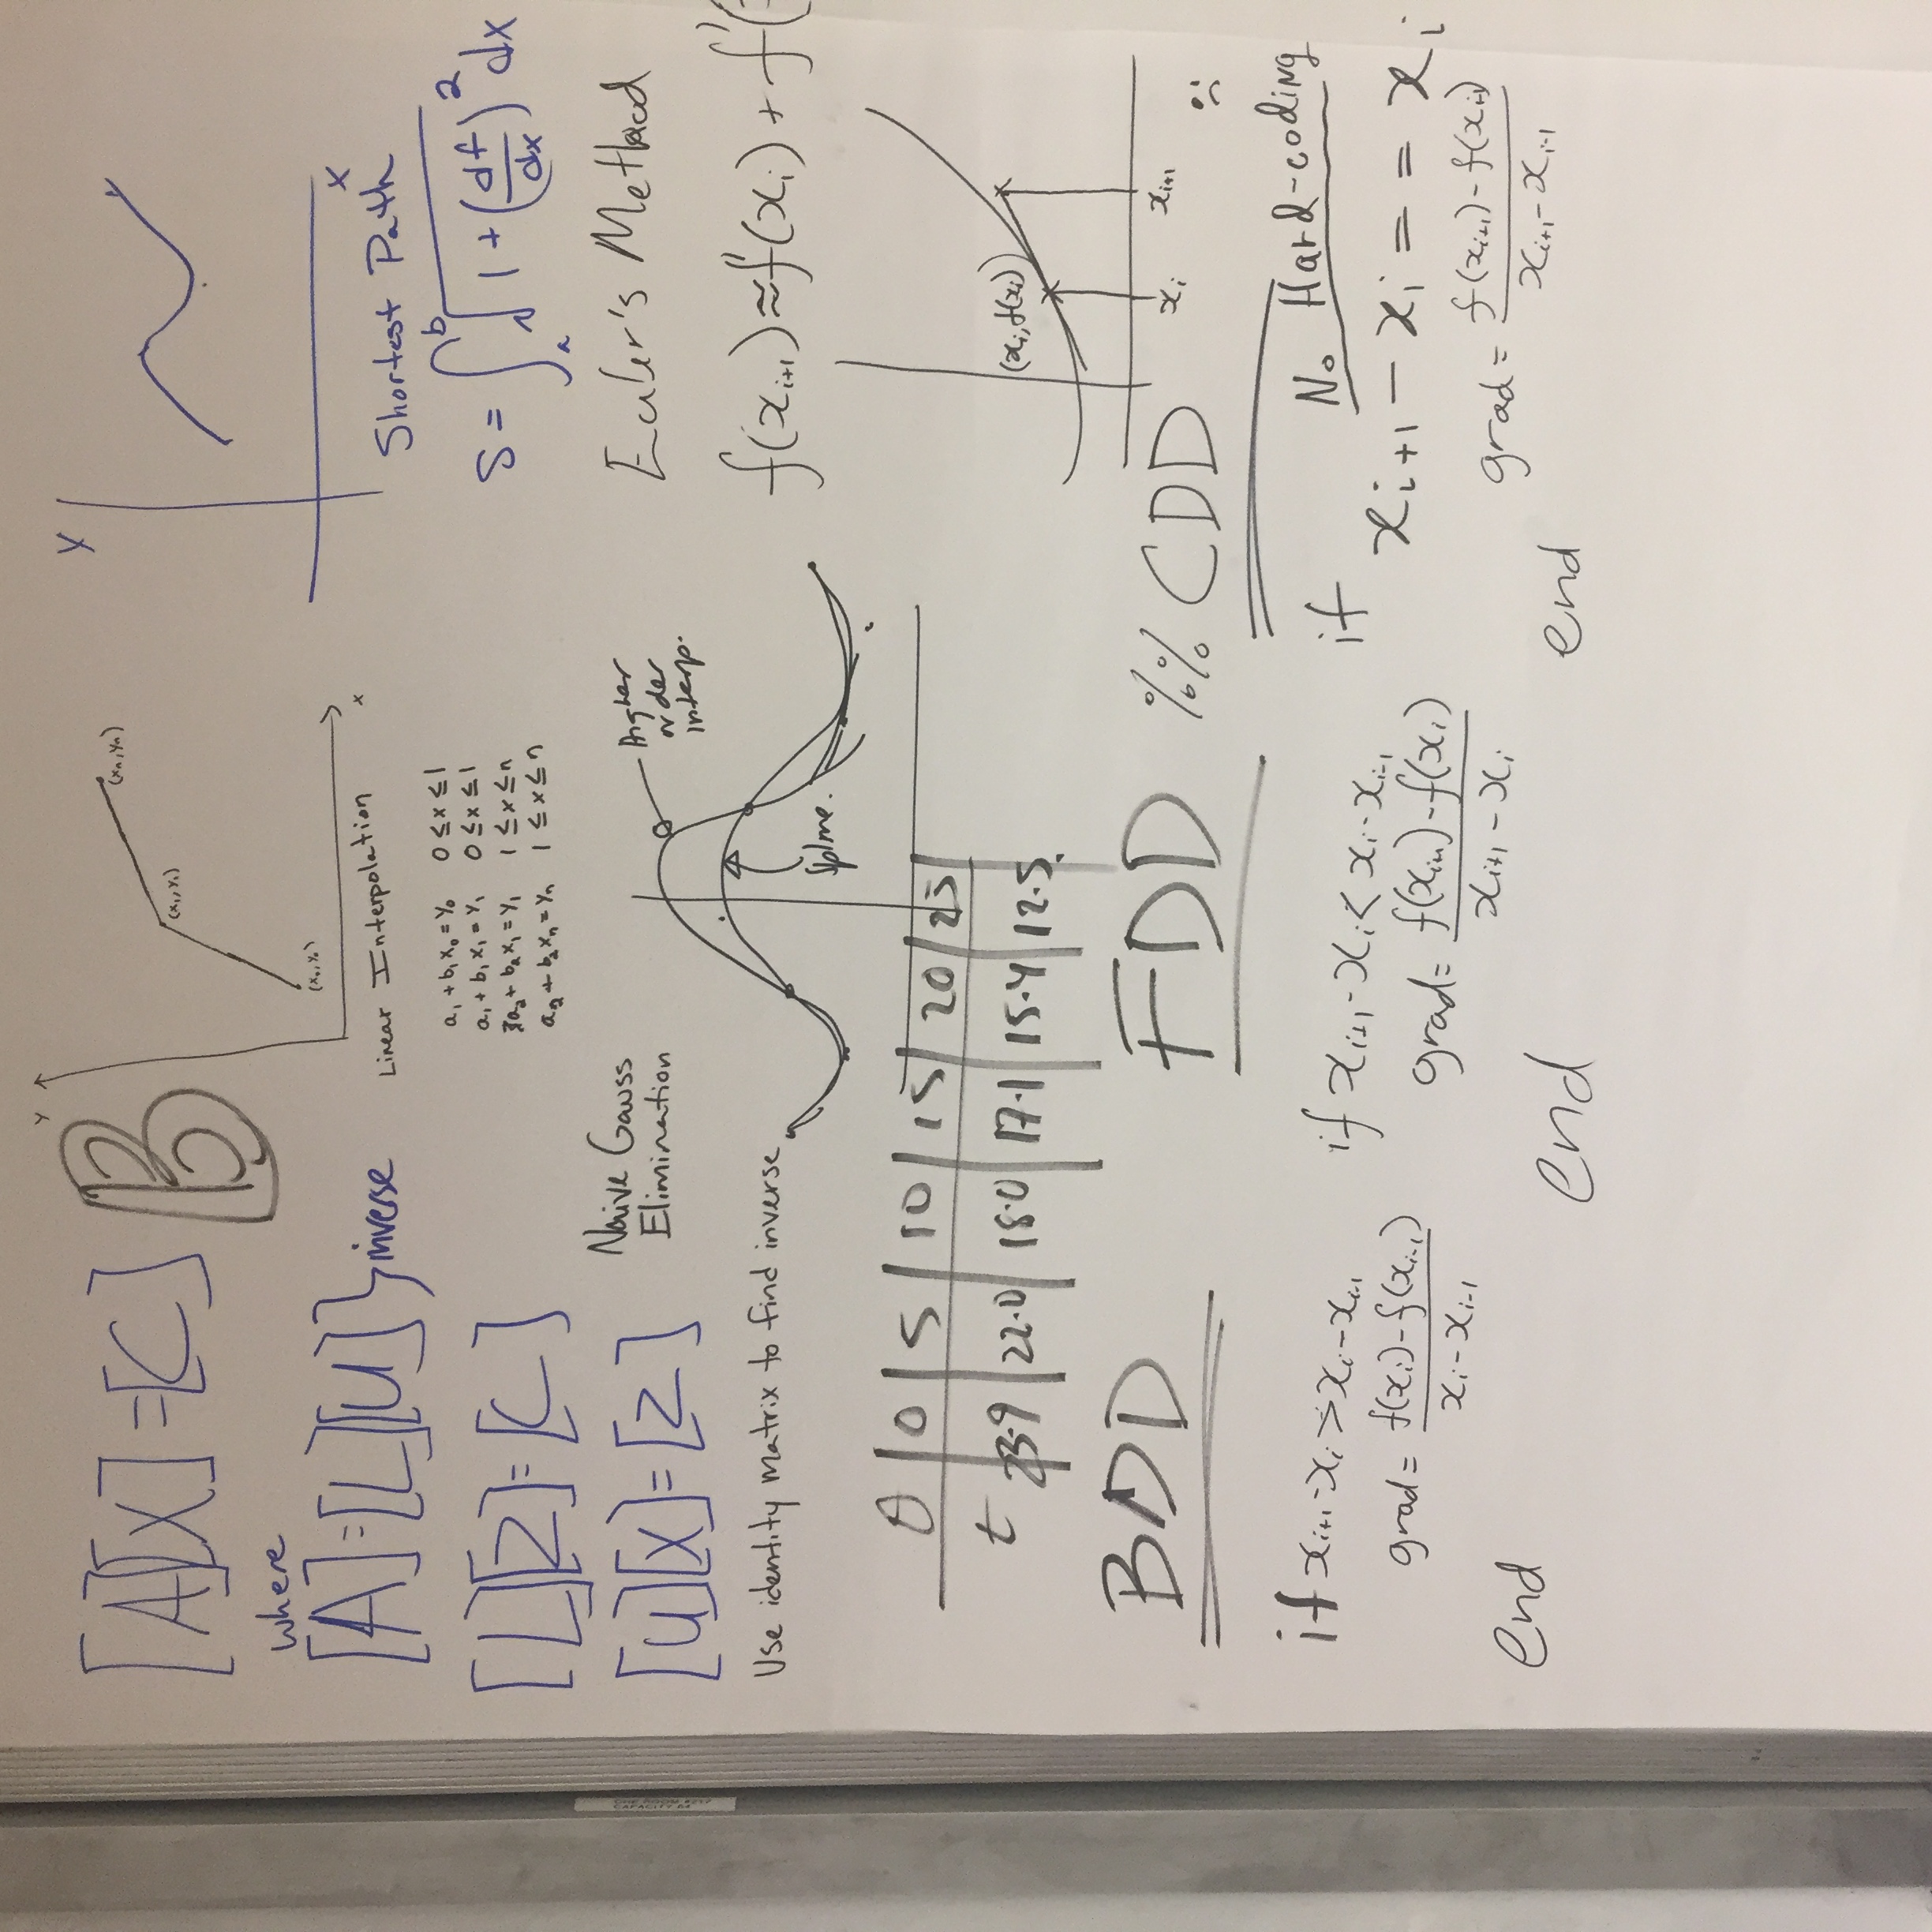 [A][X]=[C]
where
[A]=[L][U] } inverse
[L][Z]=[C]
[U][X]=[Z]
Naive Gauss
Elimination
Use identity matrix to find inverse
B
y
(x₀,y₀)
(x₁,y₁)
(xₙ,yₙ)
x
Linear Interpolation
a₁ + b₁x₀ = y₀ 0 ≤ x ≤ 1
a₁ + b₁x₁ = y₁ 0 ≤ x ≤ 1
a₂ + b₂x₁ = y₁ 1 ≤ x ≤ n
a₂ + b₂xₙ = yₙ 1 ≤ x ≤ n
Higher
order
interp.
Spline.
y
x
Shortest Path
S = ∫ₐᵇ √(1 + (df/dx)²) dx
Euler's Method
f(xᵢ₊₁) ≈ f(xᵢ) + f'(
(xᵢ, f(xᵢ))
xᵢ xᵢ₊₁
θ 0 5 10 15 20 25
t 23.9 22.0 18.0 17.1 15.4 12.5
BDD
if xᵢ₊₁-xᵢ > xᵢ-xᵢ₋₁
grad = (f(xᵢ)-f(xᵢ₋₁))/(xᵢ-xᵢ₋₁)
end
FDD
if xᵢ₊₁-xᵢ < xᵢ-xᵢ₋₁
grad = (f(xᵢ₊₁)-f(xᵢ))/(xᵢ₊₁-xᵢ)
end
%% CDD
No Hard-coding
if xᵢ₊₁ - xᵢ == xᵢ
grad = (f(xᵢ₊₁)-f(xᵢ₋₁))/(xᵢ₊₁-xᵢ₋₁)
end